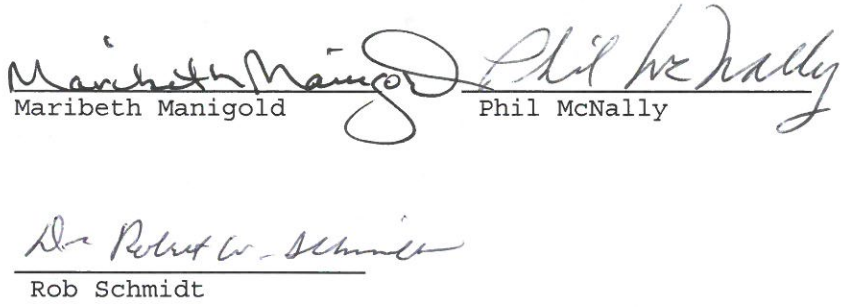 Maribeth Manigold Phil McNally
Maribeth Manigold Phil McNally
Dr Robert W. Schmidt
Rob Schmidt